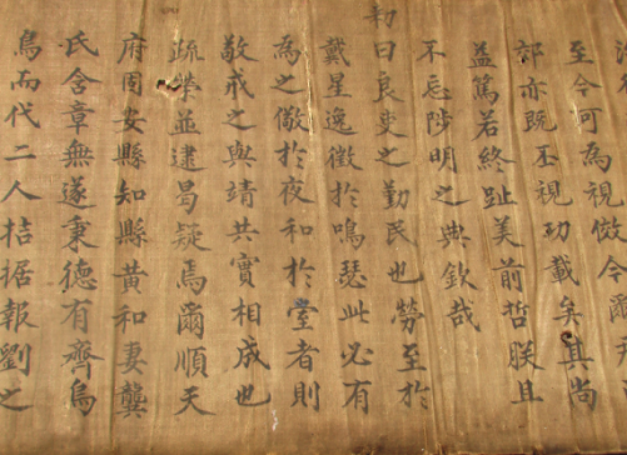 至今可為視傚今爾
郊亦既丕視功載矣其尚
益篤若終趾美前哲朕且
不忘陟明之典欽哉
制曰良吏之勤民也勞至於
戴星逸徵於鳴瑟此必有
為之儆於夜和於堂者則
敬戒之與靖共實相成也
疏榮並逮曷疑焉爾順天
府固安縣知縣黃和妻龔
氏含章無遂秉德有齊鳥
鳥而代二人拮据報劉之